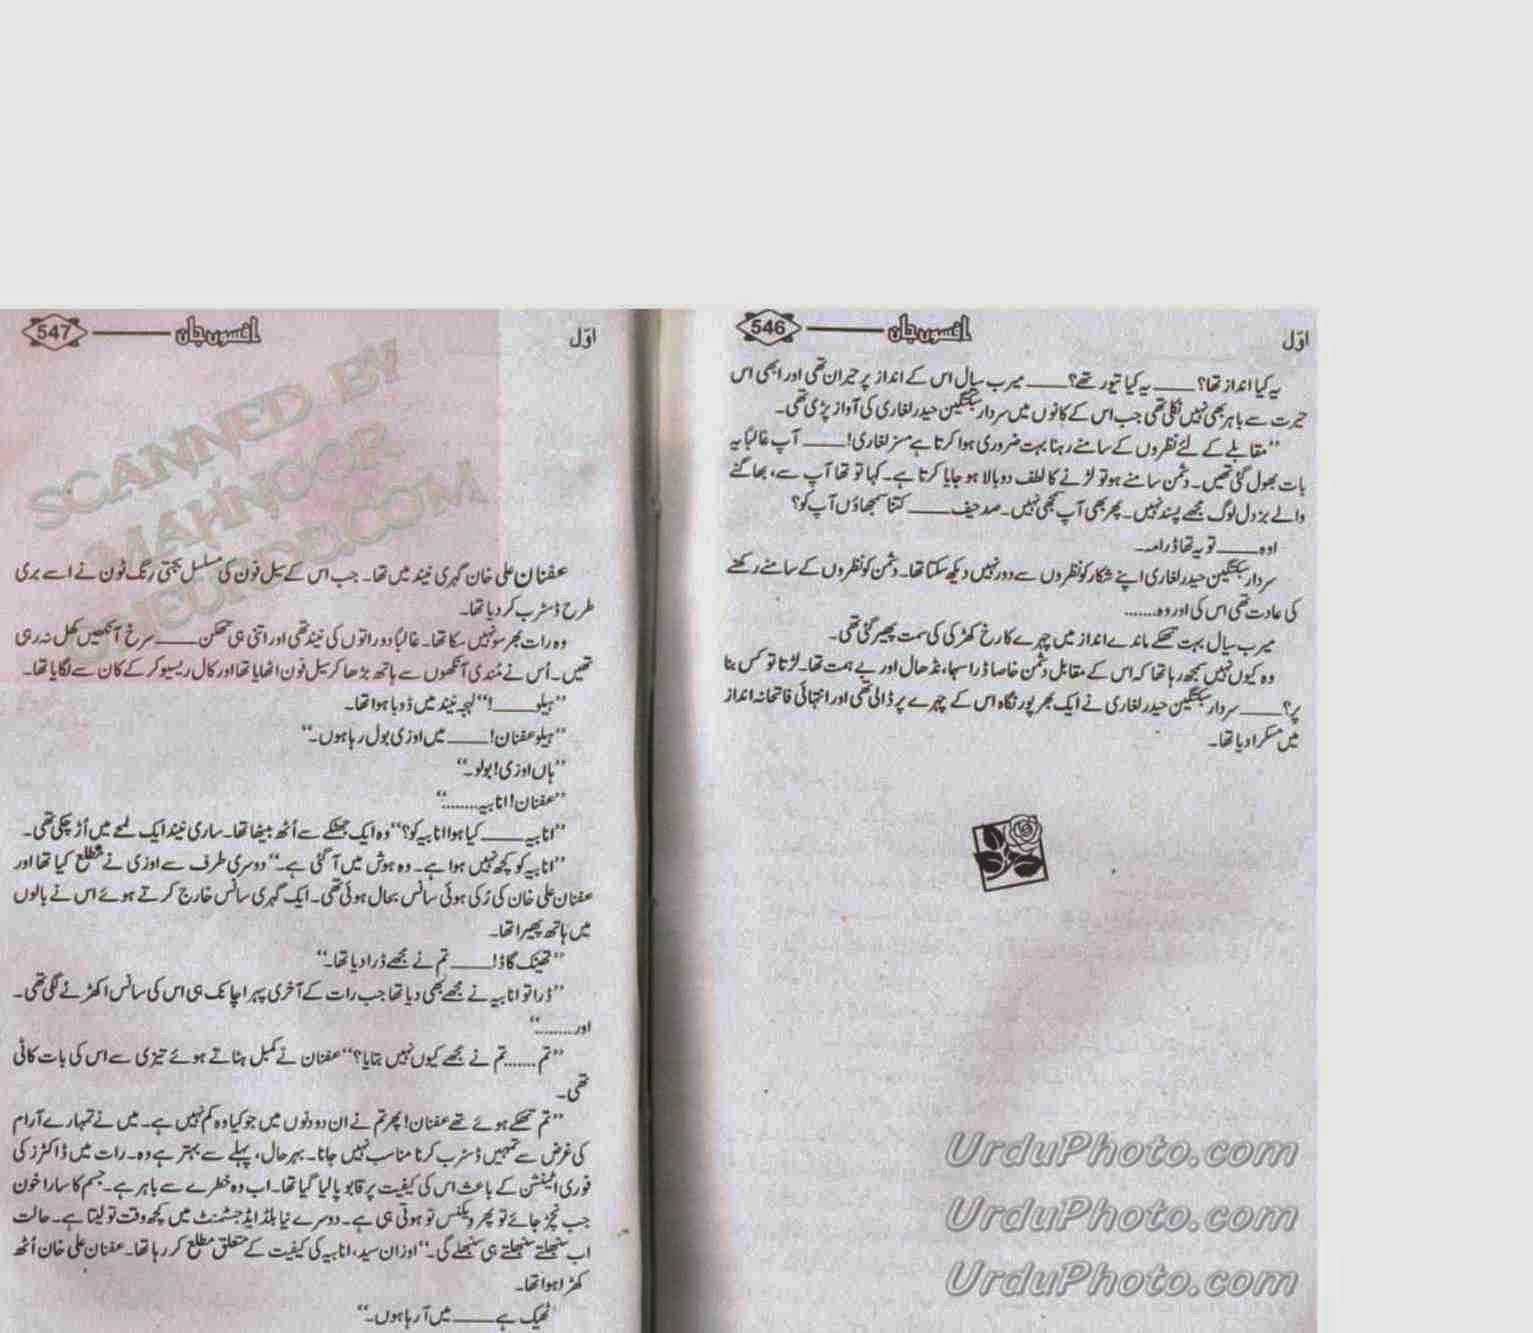 اوّل افسونِ جان 546
یہ کیا انداز تھا؟ ____ یہ کیا تیور تھے؟ ____ میرب سیال اس کے انداز پر حیران تھی اور ابھی اس
حیرت سے باہر بھی نہیں نکلی تھی جب اس کے کانوں میں سردار سبکتگین حیدر لغاری کی آواز پڑی تھی۔
”مقابلے کے لئے نظروں کے سامنے رہنا بہت ضروری ہوا کرتا ہے مسز لغاری! ____ آپ غالباً یہ
بات بھول گئی تھیں۔ دشمن سامنے ہو تو لڑنے کا لطف دوبالا ہو جایا کرتا ہے۔ کہا تو تھا آپ سے، بھاگنے
والے بزدل لوگ مجھے پسند نہیں۔ پھر بھی آپ سمجھی نہیں۔ صد حیف ____ کتنا سمجھاؤں آپ کو؟
اوہ ____ تو یہ تھا ڈرامہ۔
سردار سبکتگین حیدر لغاری اپنے شکار کو نظروں سے دور نہیں دیکھ سکتا تھا۔ دشمن کو نظروں کے سامنے رکھنے
کی عادت تھی اس کی اور وہ.......
میرب سیال بہت تھکے ماندے انداز میں چہرے کا رخ کھڑکی کی سمت پھیر گئی تھی۔
وہ کیوں نہیں سمجھ رہا تھا کہ اس کے مقابل دشمن خاصا ڈرا سہما، نڈھال اور بے ہمت تھا۔ لڑتا تو کس بنا
پر؟ ____ سردار سبکتگین حیدر لغاری نے ایک بھرپور نگاہ اس کے چہرے پر ڈالی تھی اور انتہائی فاتحانہ انداز
میں مسکرا دیا تھا۔
UrduPhoto.com
UrduPhoto.com
UrduPhoto.com
اوّل افسونِ جان 547
SCANNED BY
MAHNOOR
عفنان علی خان گہری نیند میں تھا۔ جب اس کے سیل فون کی مسلسل بجتی رِنگ ٹون نے اسے بری
طرح ڈسٹرب کر دیا تھا۔
وہ رات بھر سو نہیں سکا تھا۔ غالباً دو راتوں کی نیند تھی اور اتنی ہی تھکن ____ سرخ آنکھیں کھل نہ رہی
تھیں۔ اُس نے مُندی آنکھوں سے ہاتھ بڑھا کر سیل فون اٹھایا تھا اور کال ریسیو کر کے کان سے لگایا تھا۔
”ہیلو ____!“ لہجہ نیند میں ڈوبا ہوا تھا۔
”ہیلو عفنان! ____ میں اوزی بول رہا ہوں۔“
”ہاں اوزی! بولو۔“
”عفنان! انابیہ........“
”انابیہ ____ کیا ہوا انابیہ کو؟“ وہ ایک جھٹکے سے اُٹھ بیٹھا تھا۔ ساری نیند ایک لمحے میں اُڑ چکی تھی۔
”انابیہ کو کچھ نہیں ہوا ہے۔ وہ ہوش میں آ گئی ہے۔“ دوسری طرف سے اوزی نے مطلع کیا تھا اور
عفنان علی خان کی رُکی ہوئی سانس بحال ہوئی تھی۔ ایک گہری سانس خارج کرتے ہوئے اس نے بالوں
میں ہاتھ پھیرا تھا۔
”تھینک گاڈ! ____ تم نے مجھے ڈرا دیا تھا۔“
”ڈرا تو انابیہ نے مجھے بھی دیا تھا جب رات کے آخری پہر اچانک ہی اس کی سانس اکھڑنے لگی تھی۔
اور.........“
”تم.......تم نے مجھے کیوں نہیں بتایا؟“ عفنان نے کمبل ہٹاتے ہوئے تیزی سے اس کی بات کاٹی
تھی۔
”تم تھکے ہوئے تھے عفنان! پھر تم نے ان دو دنوں میں جو کیا وہ کم نہیں ہے۔ میں نے تمہارے آرام
کی غرض سے تمہیں ڈسٹرب کرنا مناسب نہیں جانا۔ بہرحال، پہلے سے بہتر ہے وہ۔ رات میں ڈاکٹرز کی
فوری اٹینشن کے باعث اس کی کیفیت پر قابو پا لیا گیا تھا۔ اب وہ خطرے سے باہر ہے۔ جسم کا سارا خون
جب نچڑ جائے تو پھر ویکنس تو ہوتی ہی ہے۔ دوسرے نیا بلڈ ایڈجسٹمنٹ میں کچھ وقت تو لیتا ہے۔ حالت
اب سنبھلتے سنبھلتے ہی سنبھلے گی۔“ اوزان سید، انابیہ کی کیفیت کے متعلق مطلع کر رہا تھا۔ عفنان علی خان اُٹھ
کھڑا ہوا تھا۔
ٹھیک ہے ____ میں آ رہا ہوں۔“